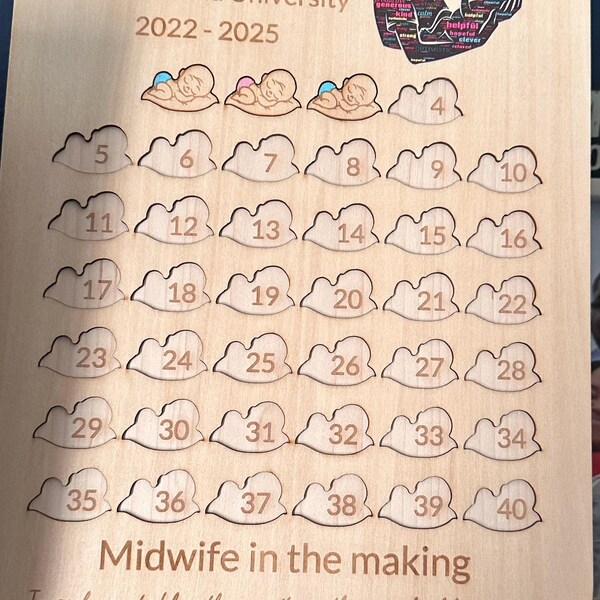 University
2022 - 2025
generous
kind
calm
helpful
strong
helpful
hopeful
clever
hopeful
4
5 6 7 8 9 10
11 12 13 14 15 16
17 18 19 20 21 22
23 24 25 26 27 28
29 30 31 32 33 34
35 36 37 38 39 40
Midwife in the making